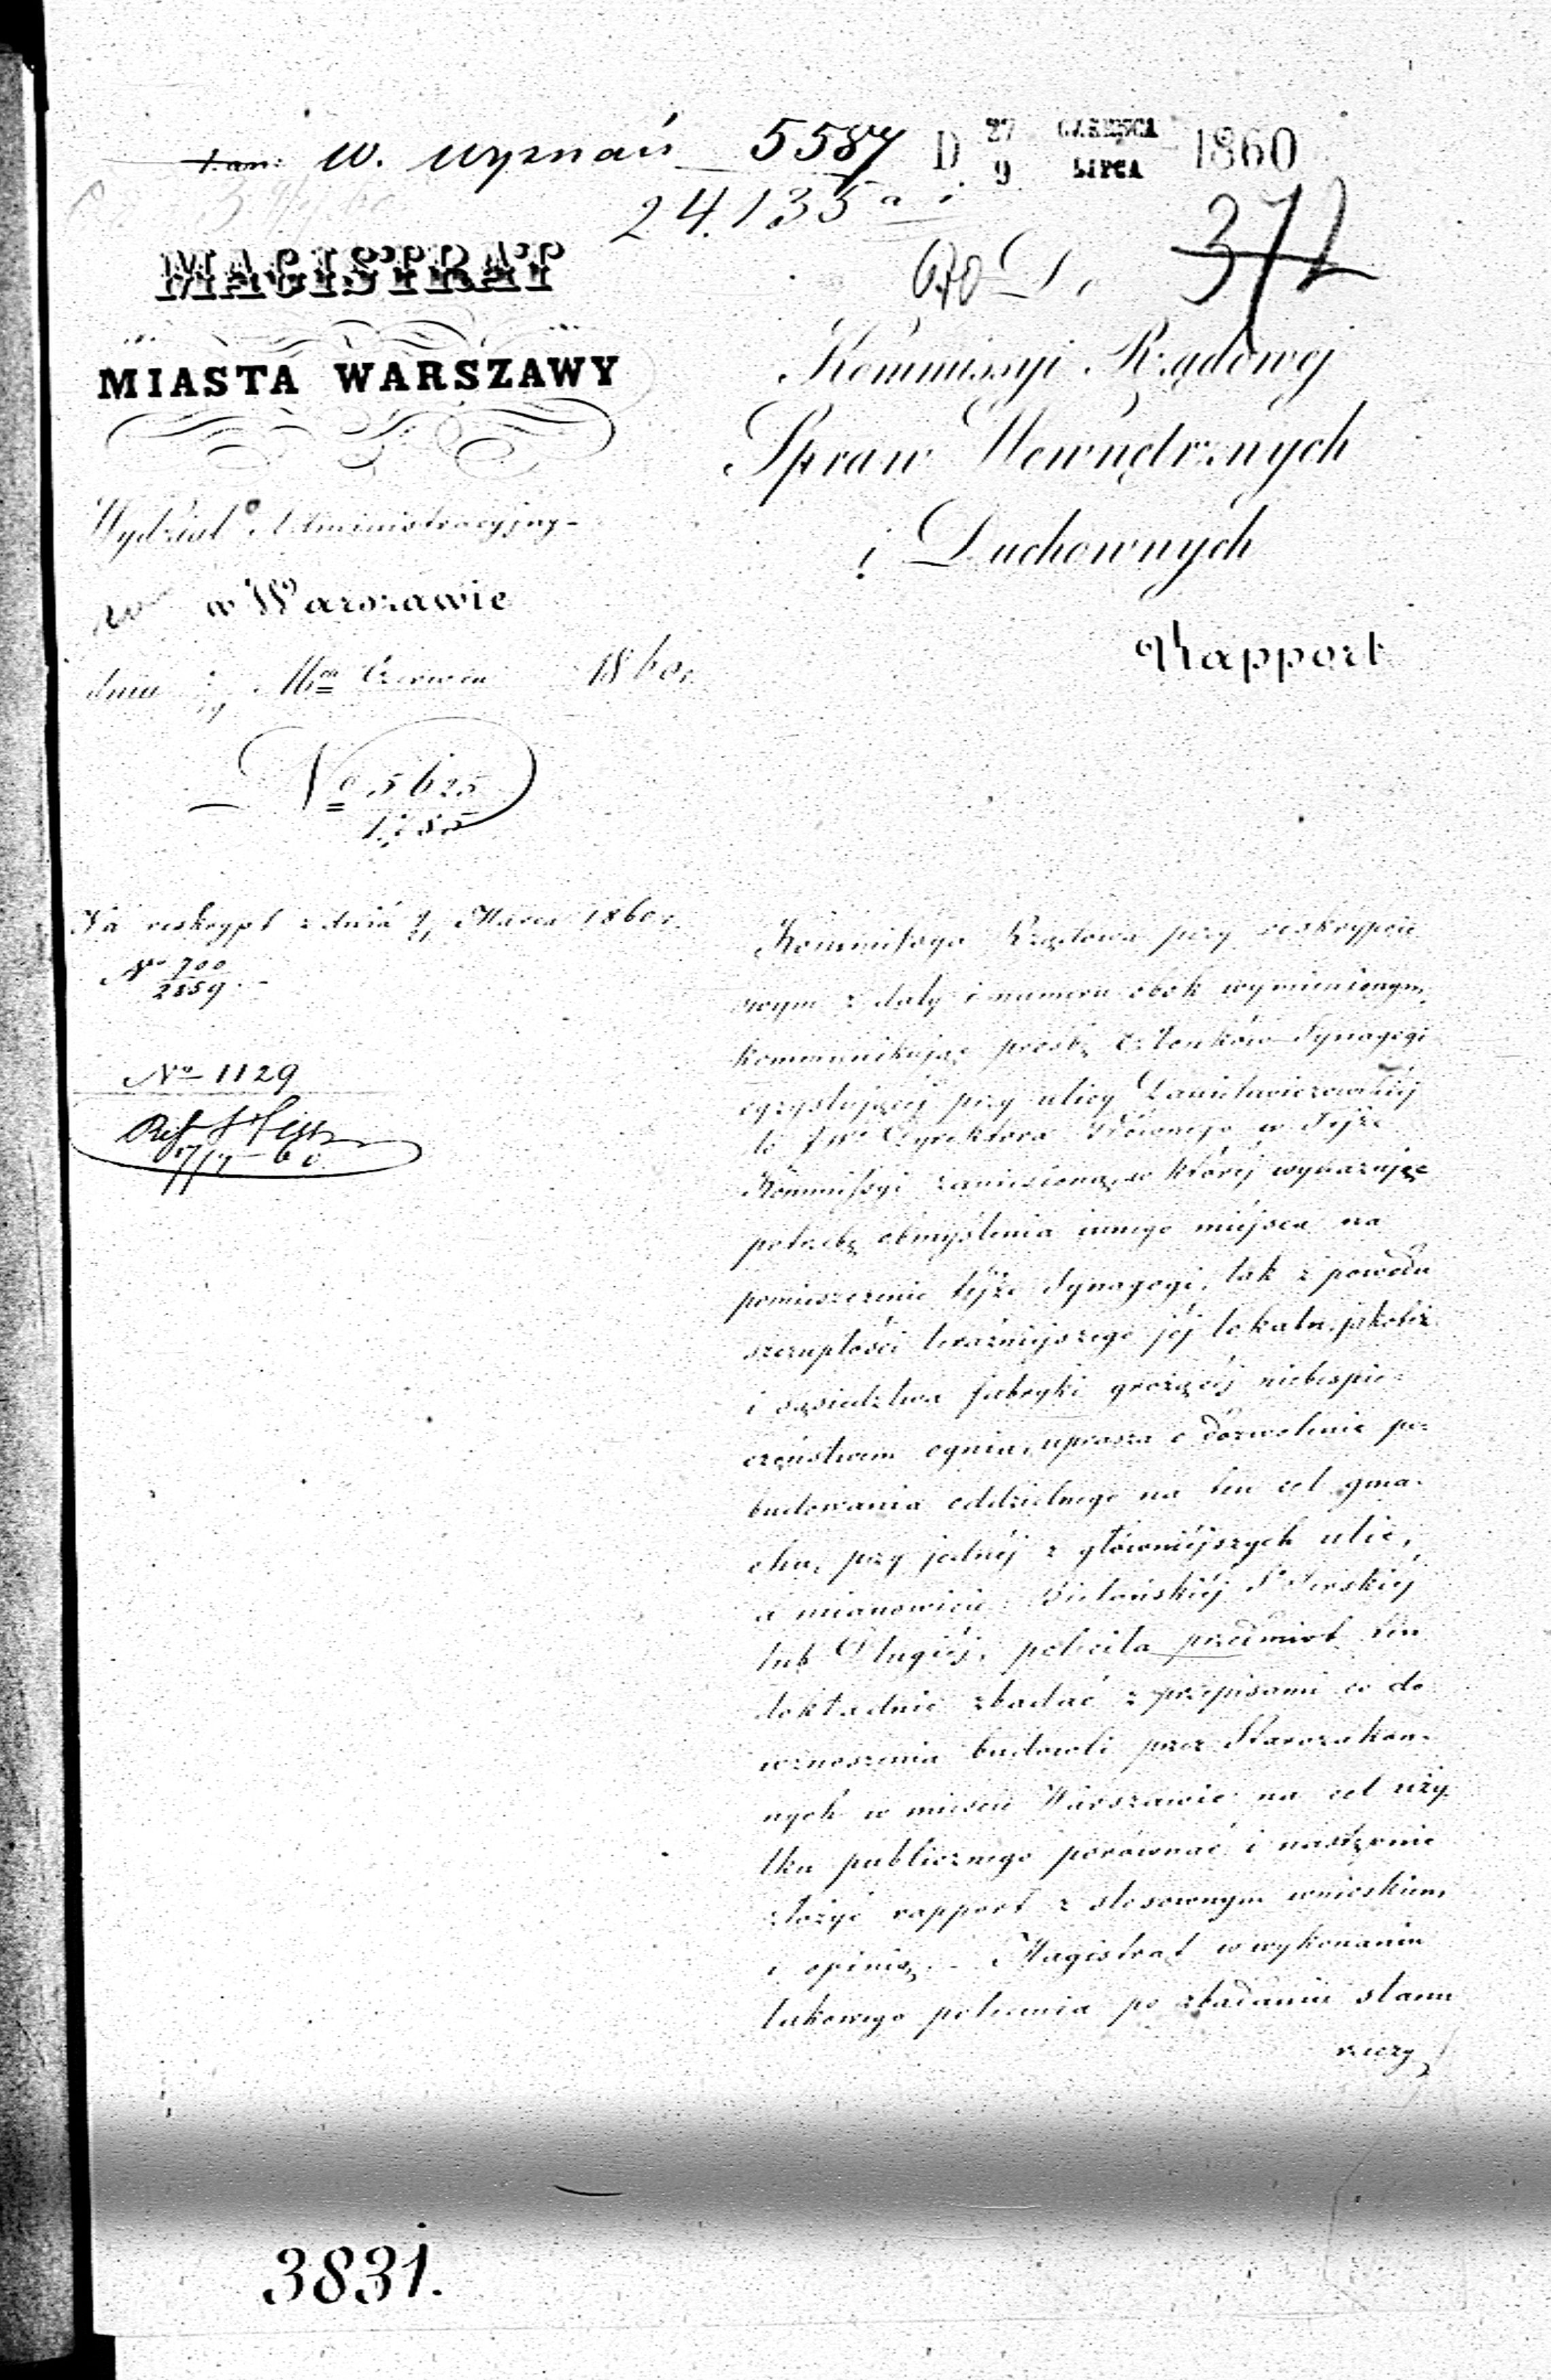 W. wyznań 5587 D 27 CZERWCA 1860
9 LIPCA
24.135
372
MAGISTRAT
MIASTA WARSZAWY
Wydział Administracyjny
w Warszawie
dnia Mca Czerwca 1860 r.
No 5625
Do
Kommissyi Rządowej
Spraw Wewnętrznych
i Duchownych
Rapport
Na reskrypt z dnia Marca 1860 r.
No 700
2859
No 1129
Kommissya Rządowa przy reskrypcie
swym z daty i numeru obok wymienionym
kommunikując prośbę Członków Synagogi
egzystującej przy ulicy Daniłowiczowskiej
do JW Dyrektora Głównego w Tejże
Kommissyi zaniesioną, w której wykazując
potrzebę obmyślenia innego miejsca na
pomieszczenie tejże Synagogi, tak z powodu
szczupłości teraźniejszego jej lokalu, jakoteż
i sąsiedztwa fabryki grożącej niebespie-
czeństwem ognia, uprasza o dozwolenie po-
budowania oddzielnego na ten cel gma-
chu, przy jednej z główniejszych ulic,
a mianowicie: Bielańskiej Sto Jerskiej
lub Długiej, poleciła przedmiot ten
dokładnie zbadać z przepisami co do
wznoszenia budowli przez Starozakon-
nych w mieście Warszawie na cel uży-
tku publicznego porównać i następnie
złożyć rapport z stosownym wnioskiem
i opinią. - Magistrat w wykonaniu
takowego polecenia po zbadaniu stanu
rzeczy
3831.